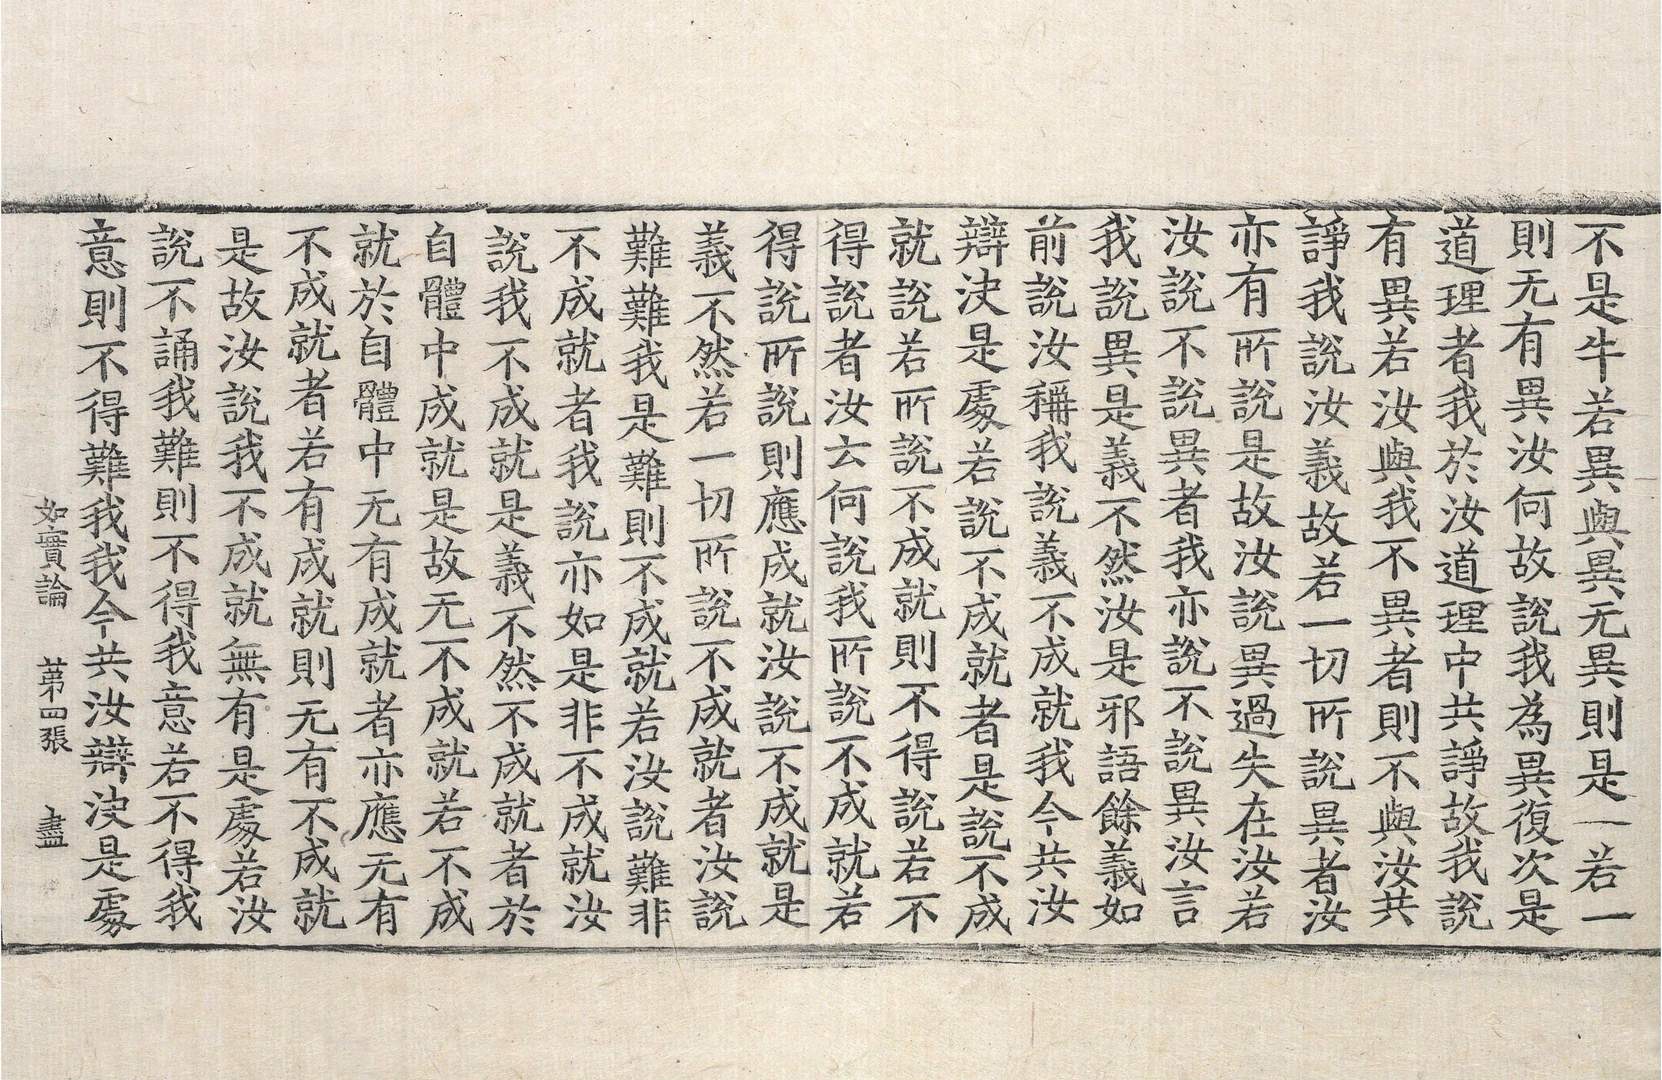 不是牛若異與異无異則是一若一
則无有異汝何故說我為異復次是
道理者我於汝道理中共諍故我說
有異若汝與我不異者則不與汝共
諍我說汝義故若一切所說異者汝
亦有所說是故汝說異過失在汝若
汝說不說異者我亦說不說異汝言
我說異是義不然汝是邪語餘義如
前說汝稱我說義不成就我今共汝
辯决是處若說不成就者是說不成
就說若所說不成就則不得說若不
得說者汝云何說我所說不成就若
得說所說則應成就汝說不成就是
義不然若一切所說不成就者汝說
難難我是難則不成就若汝說難非
不成就者我說亦如是非不成就汝
說我不成就是義不然不成就者於
自體中成就是故无不成就若不成
就於自體中无有成就者亦應无有
不成就者若有成就則无有不成就
是故汝說我不成就無有是處若汝
說不誦我難則不得我意若不得我
意則不得難我我今共汝辯决是處
如實論　苐四張　盡